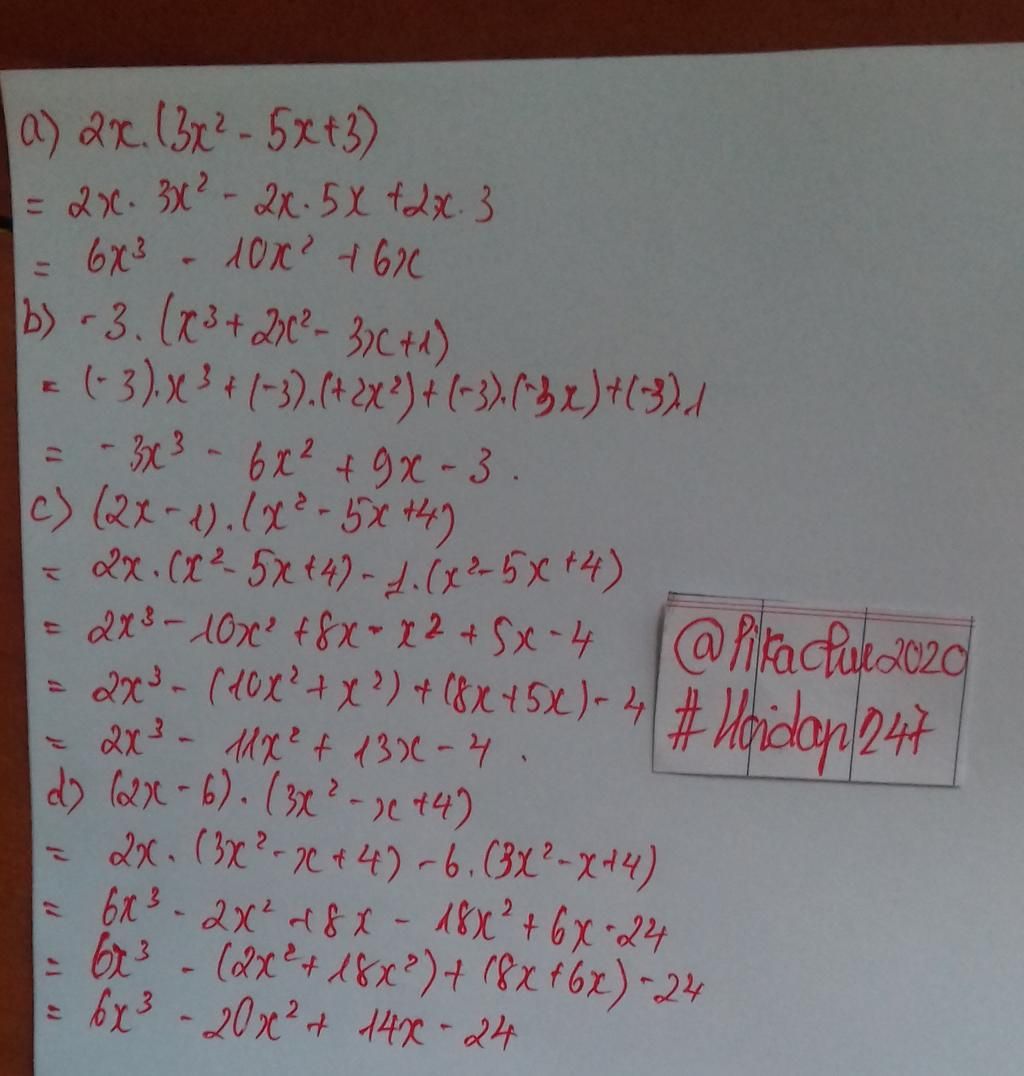 a) 2x.(3x² - 5x+3)
= 2x. 3x² - 2x. 5x +2x. 3
= 6x³ - 10x² + 6x
b) -3. (x³ + 2x² - 3x+1)
= (-3).x³ + (-3).(+2x²) + (-3).(-3x) + (-3).1
= -3x³ - 6x² + 9x - 3.
c) (2x - 1).(x² - 5x +4)
= 2x.(x² - 5x+4) - 1.(x² - 5x +4)
= 2x³ - 10x² + 8x - x² + 5x - 4
= 2x³ - (10x² + x²) + (8x + 5x) - 4
= 2x³ - 11x² + 13x - 4.
@Pikachue2020
#Hoidap247
d) (2x - 6). (3x² - x +4)
= 2x. (3x² - x + 4) - 6. (3x² - x +4)
= 6x³ - 2x² + 8x - 18x² + 6x - 24
= 6x³ - (2x² + 18x²) + (8x + 6x) - 24
= 6x³ - 20x² + 14x - 24